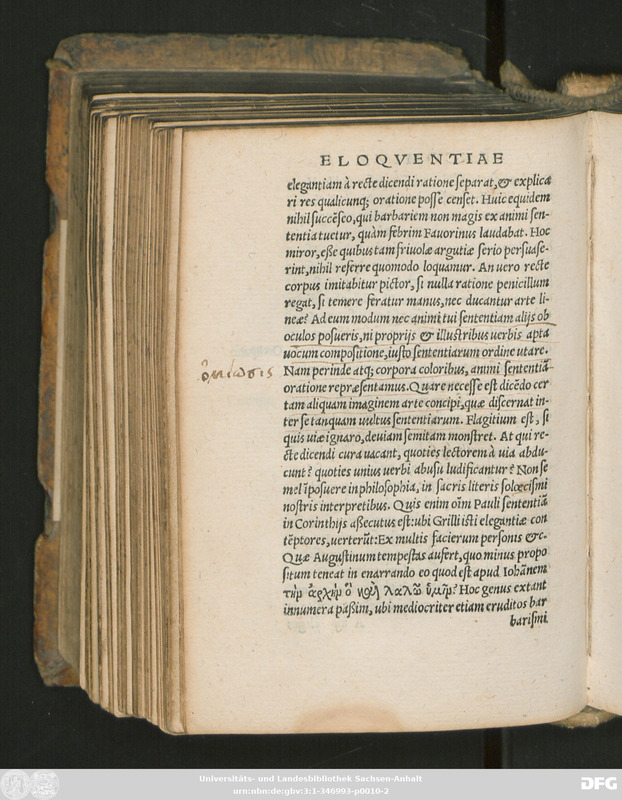 ELOQVENTIAE
elegantiam à recte dicendi ratione ſeparat, & explica
ri res qualicunq; oratione poſſe cenſet. Huic equidem
nihil ſuccēſeo, qui barbariem non magis ex animi ſen-
tentia tuetur, quàm febrim Fauorinus laudabat. Hoc
miror, eſſe quibus tam friuolæ argutiæ ſerio perſuaſe-
rint, nihil referre quomodo loquamur. An uero recte
corpus imitabitur pictor, ſi nulla ratione penicillum
regat, ſi temere feratur manus, nec ducantur arte li-
neæ? Ad eum modum nec animi tui ſententiam alijs ob
oculos poſueris, ni proprijs & illuſtribus uerbis apta
uocum compoſitione, iuſto ſententiarum ordine utare.
ὁμίωσις
Nam perinde atq; corpora coloribus, animi ſententiā
oratione repræſentamus. Quare neceſſe eſt dicēdo cer
tam aliquam imaginem arte concipi, quæ diſcernat in-
ter ſe tanquam uultus ſententiarum. Flagitium eſt, ſi
quis uiæ ignaro, deuiam ſemitam monſtret. At qui re-
cte dicendi cura uacant, quoties lectorem à uia abdu-
cunt? quoties unius uerbi abuſu ludificantur? Non ſe
mel īpoſuere in philoſophia, in ſacris literis ſolœciſmi
noſtris interpretibus. Quis enim oīm Pauli ſententiā
in Corinthijs aſſecutus eſt: ubi Grilli iſti elegantiæ con
tēptores, uerterūt: Ex multis facierum perſonis &c.
Quæ Auguſtinum tempeſtas aufert, quo minus propo
ſitum teneat in enarrando eo quod eſt apud Iohānem
τὴν ἀρχὴν ὅ τι καὶ λαλῶ ὑμῖν? Hoc genus extant
innumera paſſim, ubi mediocriter etiam eruditos bar
bariſmi
Universitäts- und Landesbibliothek Sachsen-Anhalt
urn:nbn:de:gbv:3:1-346993-p0010-2
DFG